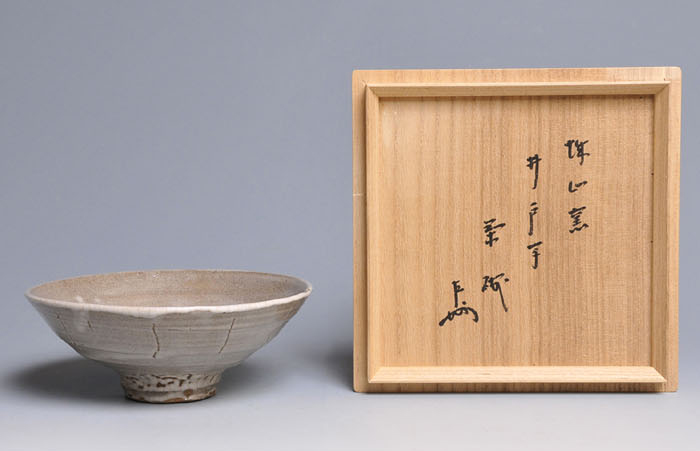 山窯
井戸手
茶碗